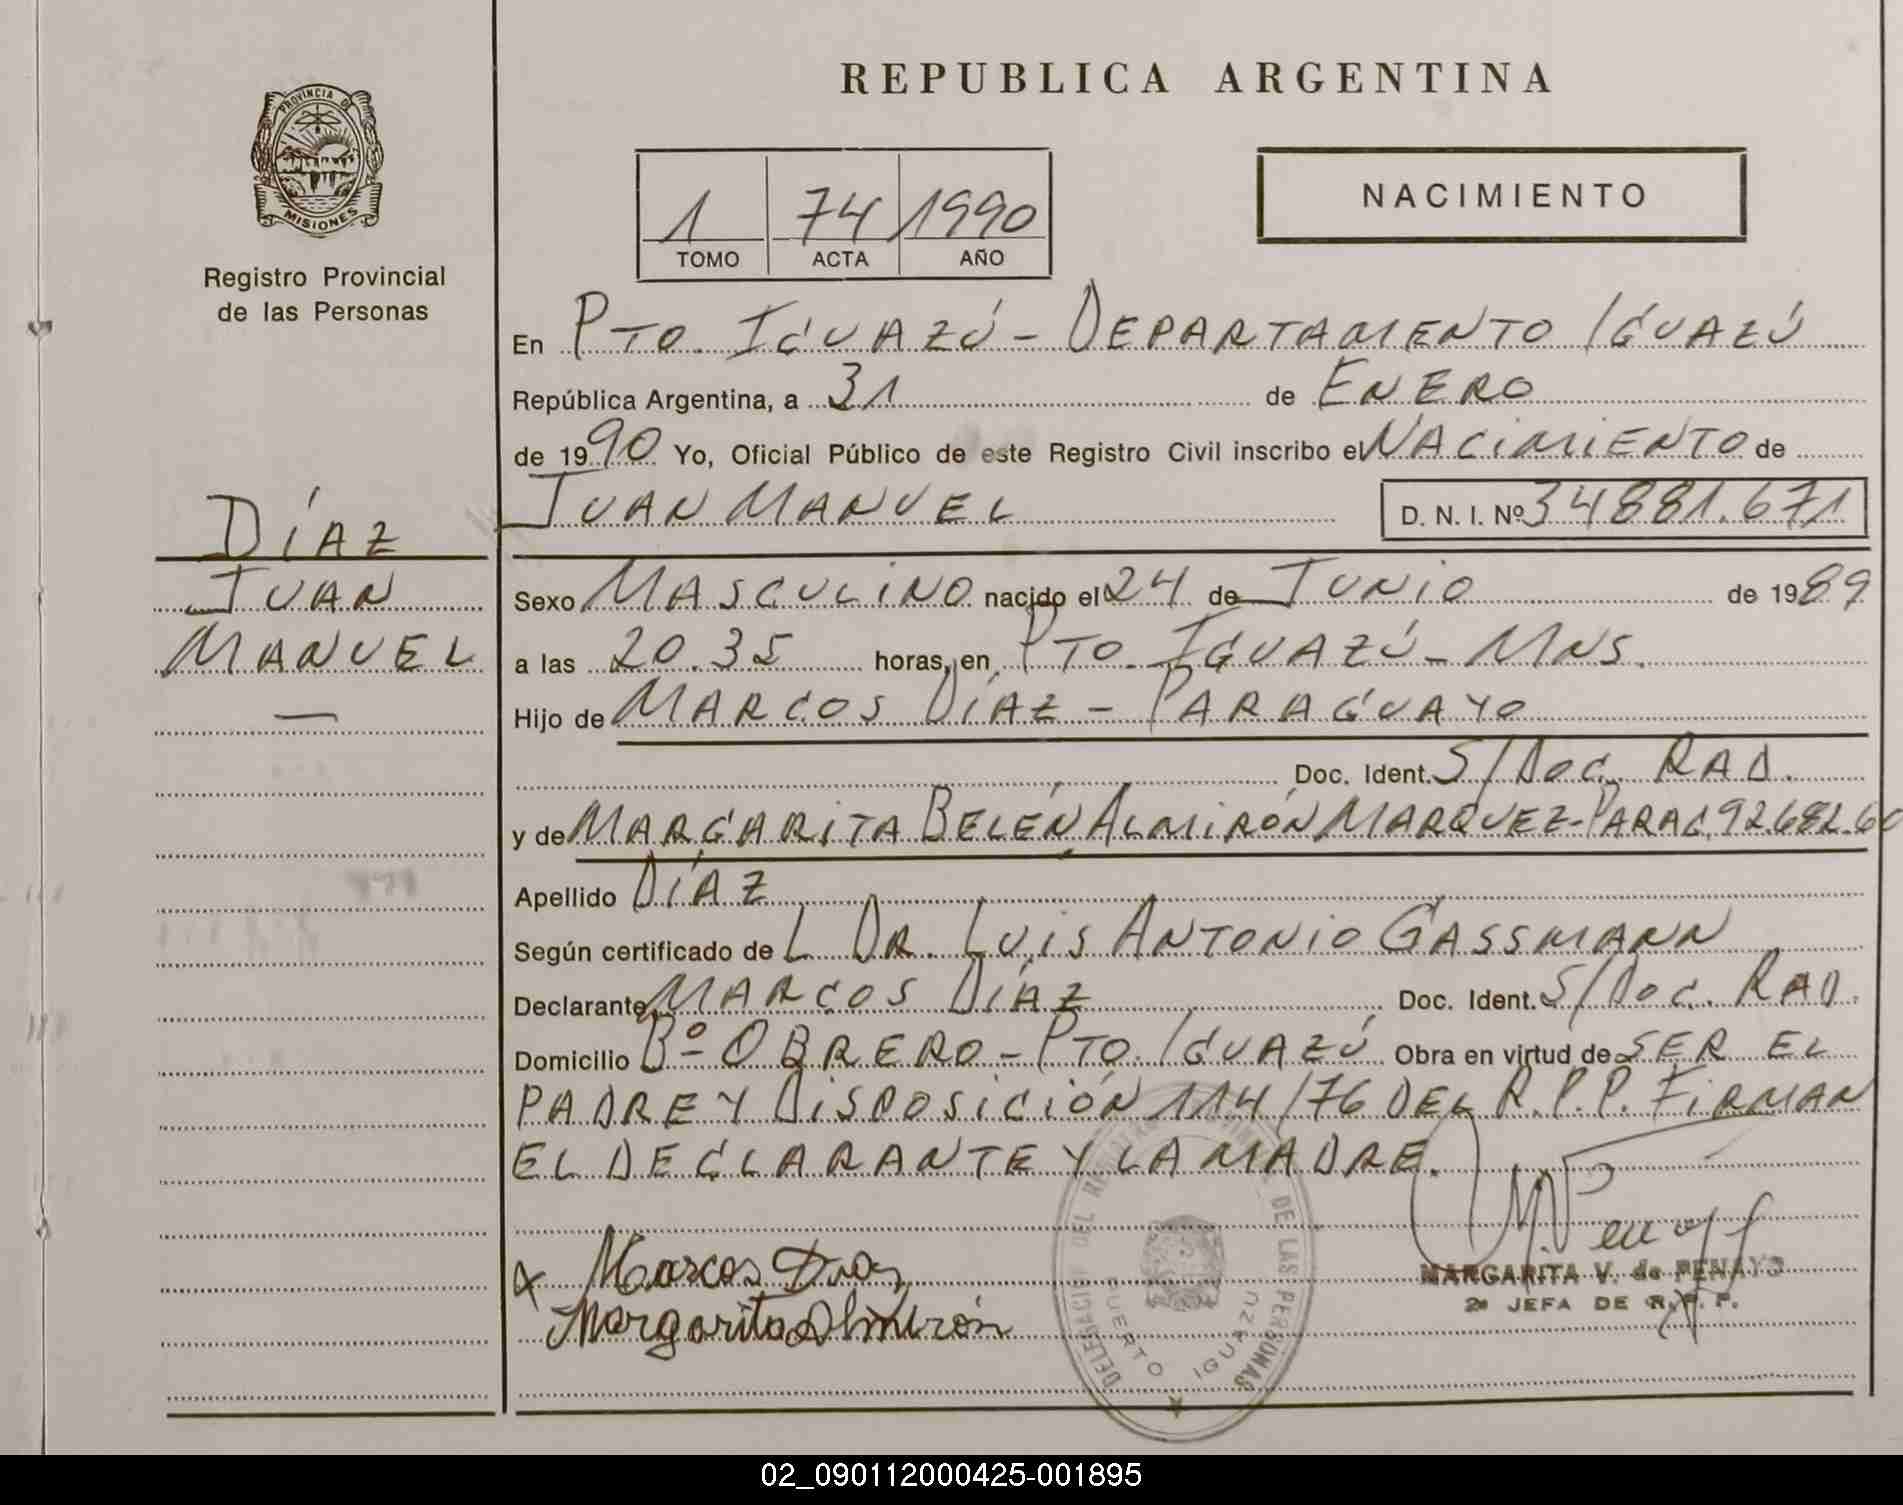 PROVINCIA DE
MISIONES
Registro Provincial
de las Personas
DÍAZ
JUAN
MANUEL
—
REPUBLICA ARGENTINA
1 74 1990
TOMO ACTA AÑO
NACIMIENTO
En PTO. IGUAZÚ - DEPARTAMENTO IGUAZÚ
República Argentina, a 31 de ENERO
de 1990 Yo, Oficial Público de este Registro Civil inscribo el NACIMIENTO de
JUAN MANUEL D. N. I. Nº 34881.671
Sexo MASCULINO nacido el 24 de JUNIO de 1989
a las 20.35 horas, en PTO. IGUAZÚ - MNS.
Hijo de MARCOS DÍAZ - PARAGUAYO
Doc. Ident. S/DOC. RAD.
y de MARGARITA BELÉN ALMIRÓN MARQUEZ - PARAG. 92.682.60
Apellido DÍAZ
Según certificado de L DR. LUIS ANTONIO GASSMANN
Declarante MARCOS DÍAZ Doc. Ident. S/DOC. RAD.
Domicilio Bº OBRERO - PTO. IGUAZÚ Obra en virtud de SER EL
PADRE Y DISPOSICIÓN 114/76 DEL R.P.P. FIRMAN
EL DECLARANTE Y LA MADRE.
x Marcos Diaz
Margarita Almirón
DELEGACION DEL REGISTRO DE LAS PERSONAS
PUERTO IGUAZU
MARGARITA V. de PENAYO
2ª JEFA DE R.P.P.
02_090112000425-001895